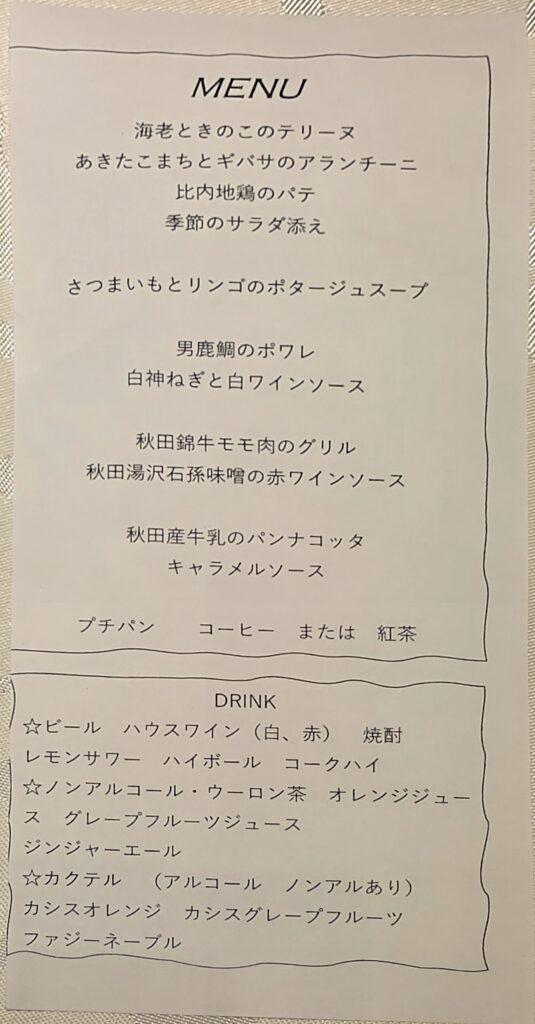 MENU
海老ときのこのテリーヌ
あきたこまちとギバサのアランチーニ
比内地鶏のパテ
季節のサラダ添え
さつまいもとリンゴのポタージュスープ
男鹿鯛のポワレ
白神ねぎと白ワインソース
秋田錦牛モモ肉のグリル
秋田湯沢石孫味噌の赤ワインソース
秋田産牛乳のパンナコッタ
キャラメルソース
プチパン　　コーヒー　または　紅茶
DRINK
☆ビール　ハウスワイン（白、赤）　焼酎
レモンサワー　ハイボール　コークハイ
☆ノンアルコール・ウーロン茶　オレンジジュー
ス　グレープフルーツジュース
ジンジャーエール
☆カクテル　（アルコール　ノンアルあり）
カシスオレンジ　カシスグレープフルーツ
ファジーネーブル